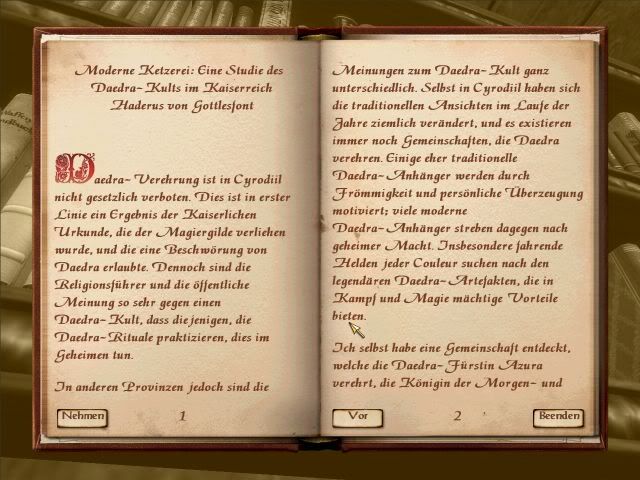 Moderne Ketzerei: Eine Studie des
Daedra-Kults im Kaiserreich
Haderus von Gottlesfont
Daedra-Verehrung ist in Cyrodiil
nicht gesetzlich verboten. Dies ist in erster
Linie ein Ergebnis der Kaiserlichen
Urkunde, die der Magiergilde verliehen
wurde, und die eine Beschwörung von
Daedra erlaubte. Dennoch sind die
Religionsführer und die öffentliche
Meinung so sehr gegen einen
Daedra-Kult, dass diejenigen, die
Daedra-Rituale praktizieren, dies im
Geheimen tun.
In anderen Provinzen jedoch sind die
Nehmen
1
Meinungen zum Daedra-Kult ganz
unterschiedlich. Selbst in Cyrodiil haben sich
die traditionellen Ansichten im Laufe der
Jahre ziemlich verändert, und es existieren
immer noch Gemeinschaften, die Daedra
verehren. Einige eher traditionelle
Daedra-Anhänger werden durch
Frömmigkeit und persönliche Überzeugung
motiviert; viele moderne
Daedra-Anhänger streben dagegen nach
geheimer Macht. Insbesondere fahrende
Helden jeder Couleur suchen nach den
legendären Daedra-Artefakten, die in
Kampf und Magie mächtige Vorteile
bieten.
Ich selbst habe eine Gemeinschaft entdeckt,
welche die Daedra-Fürstin Azura
verehrt, die Königin der Morgen- und
Vor
2
Beenden